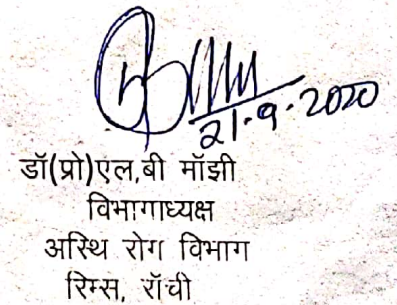 21.9.2020
डॉ(प्रो)एल,बी मॉझी
विभागाध्यक्ष
अस्थि रोग विभाग
रिम्स, रॉची